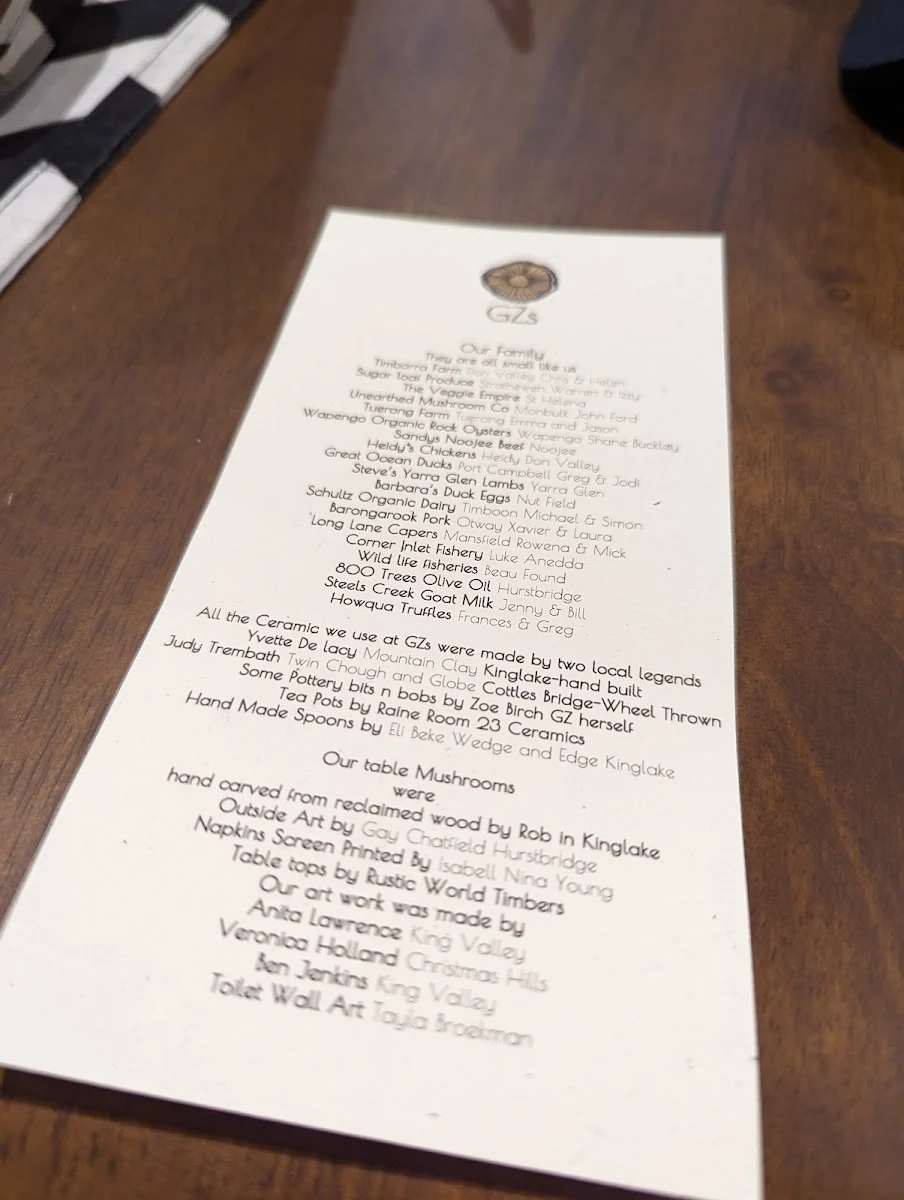 GZs
Our Family
They are all small like us
Timbarra Farm Don Valley Chris & Helen
Sugar loaf Produce Strathewen Warren & Izzy
The Veggie Empire St Helena
Unearthed Mushroom Co Monbulk John Ford
Tuerong Farm Tuerong Emma and Jason
Wapengo Organic Rock Oysters Wapengo Shane Buckley
Sandys Noojee Beef Noojee
Heidy's Chickens Heidy Don Valley
Great Ocean Ducks Port Campbell Greg & Jodi
Steve's Yarra Glen Lambs Yarra Glen
Barbara's Duck Eggs Nut Field
Schultz Organic Dairy Timboon Michael & Simon
Barongarook Pork Otway Xavier & Laura
Long Lane Capers Mansfield Rowena & Mick
Corner Inlet Fishery Luke Anedda
Wild life fisheries Beau Found
800 Trees Olive Oil Hurstbridge
Steels Creek Goat Milk Jenny & Bill
Howqua Truffles Frances & Greg
All the Ceramic we use at GZs were made by two local legends
Yvette De lacy Mountain Clay Kinglake-hand built
Judy Trembath Twin Chough and Globe Cottles Bridge-Wheel Thrown
Some Pottery bits n bobs by Zoe Birch GZ herself
Tea Pots by Raine Room 23 Ceramics
Hand Made Spoons by Eli Beke Wedge and Edge Kinglake
Our table Mushrooms
were
hand carved from reclaimed wood by Rob in Kinglake
Outside Art by Gay Chatfield Hurstbridge
Napkins Screen Printed By Isabell Nina Young
Table tops by Rustic World Timbers
Our art work was made by
Anita Lawrence King Valley
Veronica Holland Christmas Hills
Ben Jenkins King Valley
Toilet Wall Art Tayla Broekman